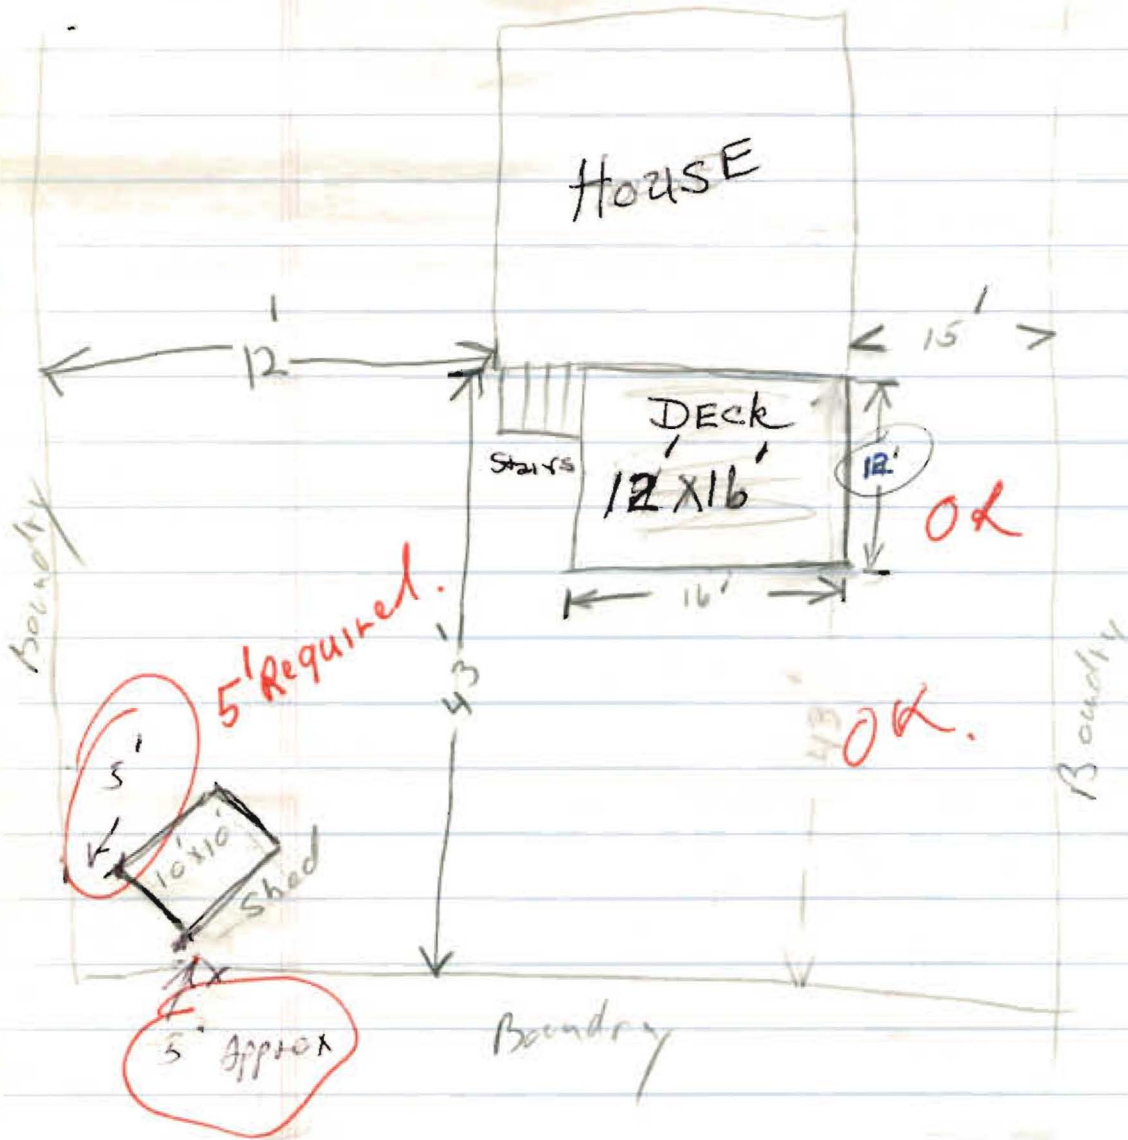 HOUSE
12'
15'
DECK
12' X 16'
Stairs
12'
OK
16'
Boundry
5' Required.
43'
43
OK.
Boundry
5'
10' x 10'
Shed
5' Approx
Boundry